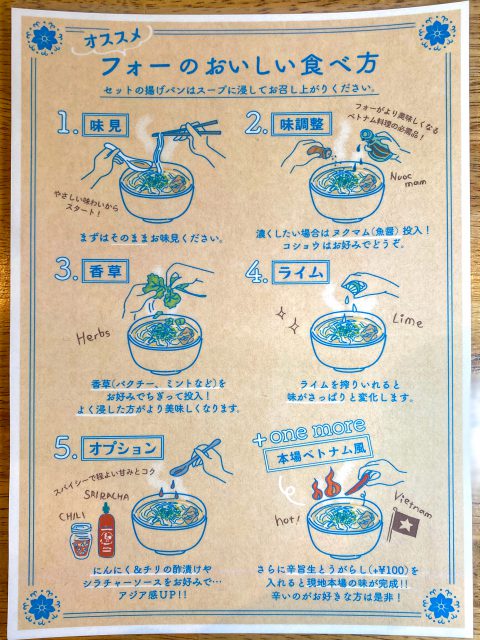 オススメ
フォーのおいしい食べ方
セットの揚げパンはスープに浸してお召し上がりください。
1. 味見
やさしい味わいから
スタート！
まずはそのままお味見ください。
2. 味調整
フォーがより美味しくなる
ベトナム料理の必需品！
Nuoc
mam
濃くしたい場合はヌクマム(魚醤)投入！
コショウはお好みでどうぞ。
3. 香草
Herbs
香草(パクチー、ミントなど)を
お好みでちぎって投入！
よく浸した方がより美味しくなります。
4. ライム
Lime
ライムを搾りいれると
味がさっぱりと変化します。
5. オプション
スパイシーで程よい甘みとコク
SRIRACHA
CHILI
にんにく&チリの酢漬けや
シラチャーソースをお好みで…
アジア感UP!!
+one more
本場ベトナム風
hot!
Vietnam
さらに辛旨生とうがらし(+¥100)を
入れると現地本場の味が完成!!
辛いのがお好きな方は是非！